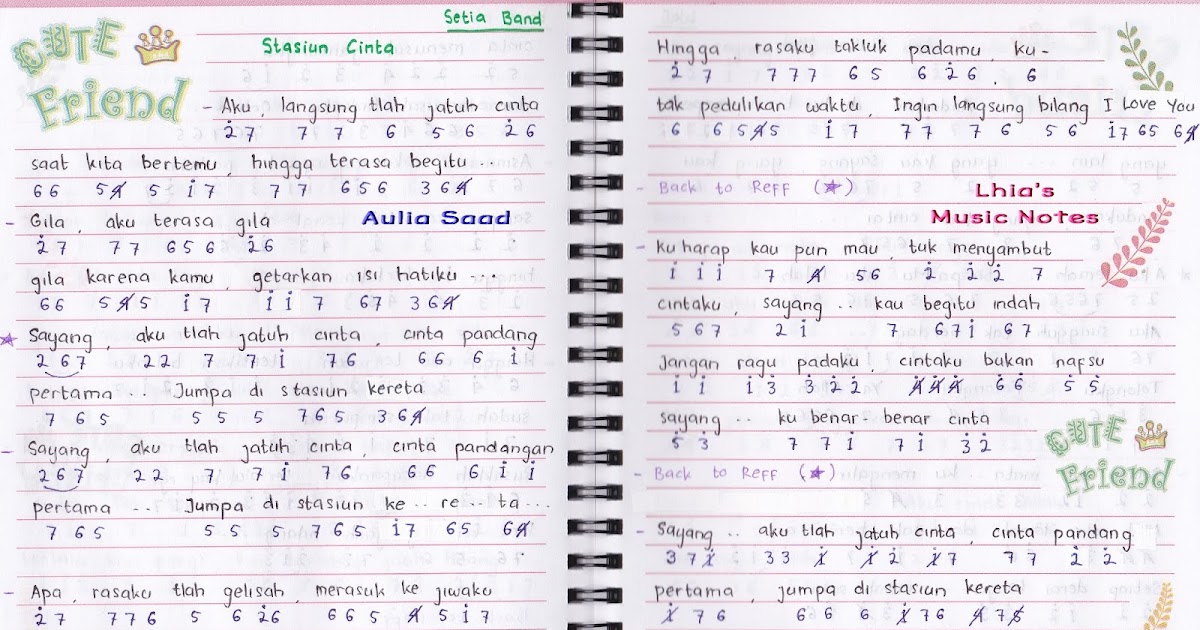 CUTE
Friend
Setia Band
Stasiun Cinta
- Aku, langsung tlah jatuh cinta
2̇ 7 7 7 6 5 6 2̇ 6
saat kita bertemu, hingga terasa begitu...
6 6 5 4̸ 5 1̇ 7 7 7 6 5 6 3 6 4̸
- Gila, aku terasa gila
Aulia Saad
2̇ 7 7 7 6 5 6 2̇ 6
gila karena kamu, getarkan isi hatiku ...
6 6 5 4̸ 5 1̇ 7 1̇ 1̇ 7 6 7 3 6 4̸
★ Sayang, aku tlah jatuh cinta, cinta pandang
2 6 7 2 2 7 7 1̇ 7 6 6 6 6 1̇
pertama ... Jumpa di stasiun kereta
7 6 5 5 5 5 7 6 5 3 6 4̸
- Sayang, aku tlah jatuh cinta, cinta pandangan
2 6 7 2 2 7 7 1̇ 7 6 6 6 6 1̇ 1̇
pertama ... Jumpa di stasiun ke.. re.. ta...
7 6 5 5 5 5 7 6 5 1̇ 7 6 5 6 4̸
- Apa, rasaku tlah gelisah, merasuk ke jiwaku
2̇ 7 7 7 6 5 6 2̇ 6 6 6 5 4̸ 5 1̇ 7
Hingga, rasaku takluk padamu, ku-
2̇ 7 7 7 7 6 5 6 2̇ 6 6
tak pedulikan waktu, Ingin langsung bilang I Love You
6 6 5 4̸ 5 1̇ 7 7 7 7 6 5 6 1̇ 7 6 5 6 4̸
- Back to Reff (★)
Lhia's
Music Notes
- ku harap kau pun mau, tuk menyambut
1̇ 1̇ 1̇ 7 4̸ 5 6 2̇ 2̇ 2̇ 7
cintaku, sayang.. kau begitu indah
5 6 7 2 1̇ 7 6 7 1̇ 6 7
Jangan ragu padaku, cintaku bukan nafsu
1̇ 1̇ 1̇ 3 3 2̇ 2̇ 4̸̇ 4̸̇ 4̸̇ 6 6̇ 5 5̇
sayang.. ku benar-benar cinta
5̇ 3̇ 7 7 1̇ 7 1̇ 3̇ 2̇
- Back to Reff (★)
CUTE
Friend
- Sayang.. aku tlah jatuh cinta, cinta pandang
3 7 1̸̇ 3 3 1̸̇ 1̸̇ 2̇ 1̸̇ 7 7 7 2̇ 2̇
pertama, jumpa di stasiun kereta
1̸̇ 7 6 6 6 6 1̸̇ 7 6 4̸ 7 6̸